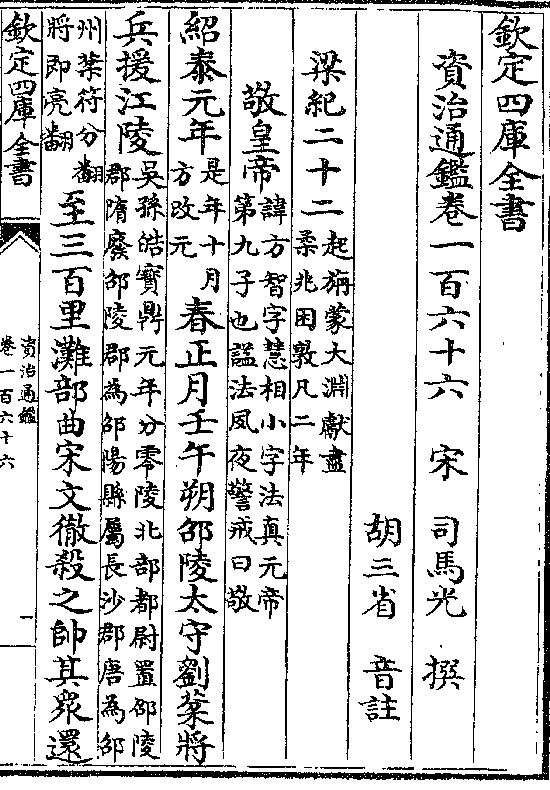 欽定四庫全書
資治通鑑卷一百六十六 宋 司馬光 撰
胡三省 音註
梁紀二十二 起旃蒙大淵獻盡
柔兆困敦凡二年
敬皇帝 諱方智字慧相小字法真元帝
第九子也諡法夙夜警戒曰敬
紹泰元年 是年十月
方改元
春正月壬午朔邵陵太守劉棻將
兵援江陵 吳孫皓寶鼎元年分零陵北部都尉置邵陵
郡隋廢邵陵郡為邵陽縣屬長沙郡唐為邵
州棻符分翻
將即亮翻
至三百里灘部曲宋文徹殺之帥其衆還
欽定四庫全書
資治通鑑
卷一百六十六
一